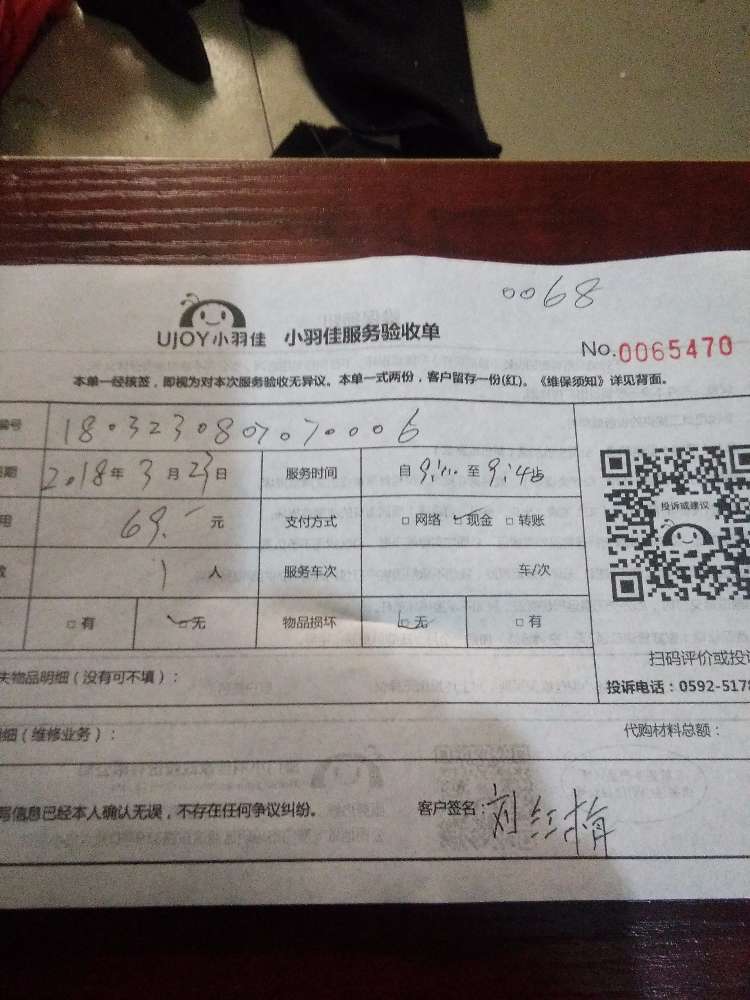 0068
UJOY小羽佳 小羽佳服务验收单
No.0065470
本单一经核签，即视为对本次服务验收无异议。本单一式两份，客户留存一份(红)。《维保须知》详见背面。
编号 1803230807070006
2018年3月23日 服务时间 自9:00至9:45
69.- 元 支付方式 □网络 □现金 □转账
投诉或建议
1 人 服务车次 车/次
□有 □无 物品损坏 □无 □有
扫码评价或投诉
失物品明细（没有可不填）：
投诉电话：0592-5178
细（维修业务）： 代购材料总额：
写信息已经本人确认无误，不存在任何争议纠纷。 客户签名：刘红梅